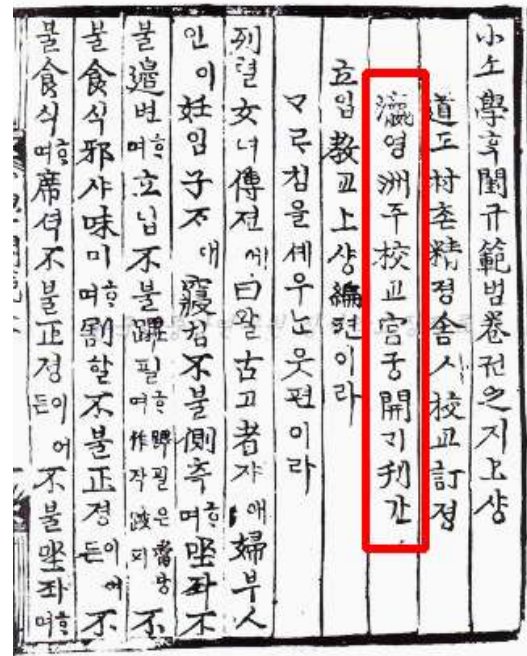 小쇼學ᄒᆞᆨ閨규範범卷권之지上샹
道도村촌精졍舍샤校교訂졍
瀛영洲쥬校교宮궁開기刊간
立입敎교上샹編편이라
ᄀᆞᄅᆞ침을셰우ᄂᆞᆫ웃편이라
列렬女녀傳젼에曰왈古고者쟈애婦부人
인이妊임子ᄌᆞ애寢침不불側측ᄒᆞ며坐좌不
불邊변ᄒᆞ며立닙不불蹕필ᄒᆞ며蹕필은當당作작跛피不
불食식邪샤味미ᄒᆞ며割할不불正졍이어든不
불食식ᄒᆞ며席셕不불正졍이어든不불坐좌ᄒᆞ며